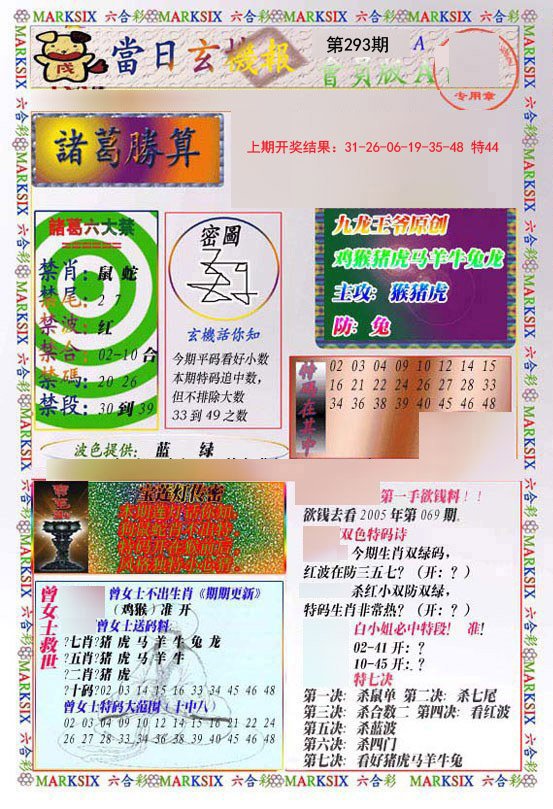 MARKSIX 六合彩 MARKSIX 六合彩 MARKSIX 六合彩 MARKSIX 六合彩
當日玄機報
第293期
A
會員版A
专用章
諸葛勝算
上期开奖结果：31-26-06-19-35-48 特44
諸葛六大禁
禁肖：鼠 蛇
禁尾：2 7
禁波：红
禁合：02-10 合
禁碼：20 26
禁段：30 到 39
密圖
玄機話你知
今期平码看好小数
本期特码追中数，
但不排除大数
33 到 49 之数
九龙王爷原创
鸡猴猪虎马羊牛兔龙
主攻：猴猪虎
防：兔
特码在其中
02 03 04 09 10 12 14 15
16 21 22 24 26 27 28 33
34 36 38 39 40 45 46 48
波色提供：蓝 绿
宝莲灯传密
曾女士救世
曾女士不出生肖《期期更新》
（鸡猴）准 开
曾女士送码料：
?七肖?猪 虎 马 羊 牛 兔 龙
?五肖?猪 虎 马 羊 牛
?二肖?猪 虎
?十码?02 03 14 15 16 33 34 45 46 48
曾女士特码大范围（十中八）
02 03 04 09 10 12 14 15 16 21 22 24
26 27 28 33 34 36 38 39 40 45 46 48
第一手欲钱料！！
欲钱去看 2005 年第 069 期.
双色特码诗
今期生肖双绿码，
红波在防三五七?（开：?）
杀红小双防双绿，
特码生肖非常热?（开：?）
白小姐必中特段！ 准!
02-41 开：?
10-45 开：?
特七决
第一决：杀鼠单 第二决：杀七尾
第三决：杀合数二 第四决：看红波
第五决：杀蓝波
第六决：杀四门
第七决：看好猪虎马羊牛兔
MARKSIX 六合彩 MARKSIX 六合彩 MARKSIX 六合彩 MARKSIX 六合彩